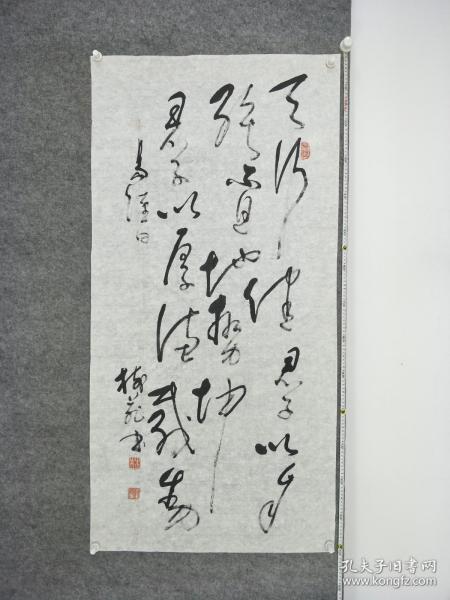 天行健君子以自
强不息地势坤
君子以厚德载物
易经曰
书
孔夫子旧书网
www.kongfz.com